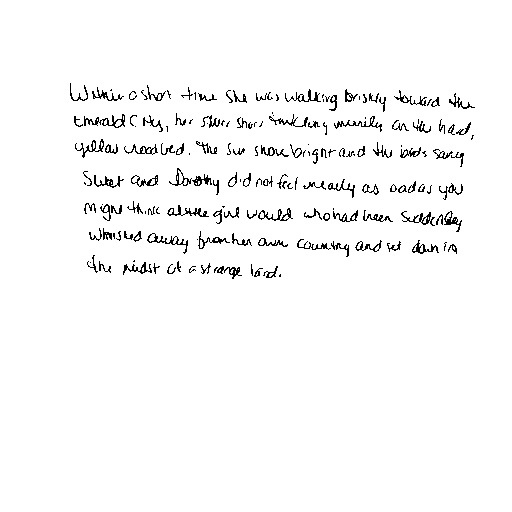 Within a short time she was walking briskly toward the
Emerald City, her silver shoes tinkling merrily on the hard,
yellow road bed. The sun shone bright and the birds sang
sweet and Dorothy did not feel nearly as bad as you
might think a little girl would who had been suddenly
whisked away from her own country and set down in
the midst of a strange land.